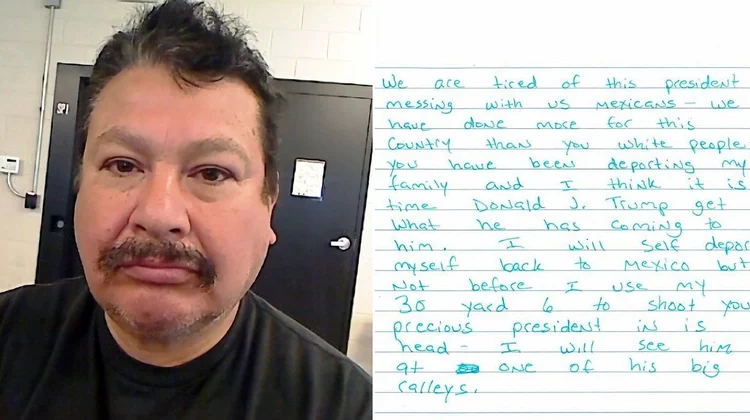 We are tired of this president
messing with us Mexicans - we
have done more for this
Country than you white people
you have been deporting my
family and I think it is
time Donald J. Trump get
what he has coming to
him. I will self depor
myself back to Mexico but
not before I use my
30 yard 6 to shoot you
precious president in is
head - I will see him
at one of his big
ralleys.